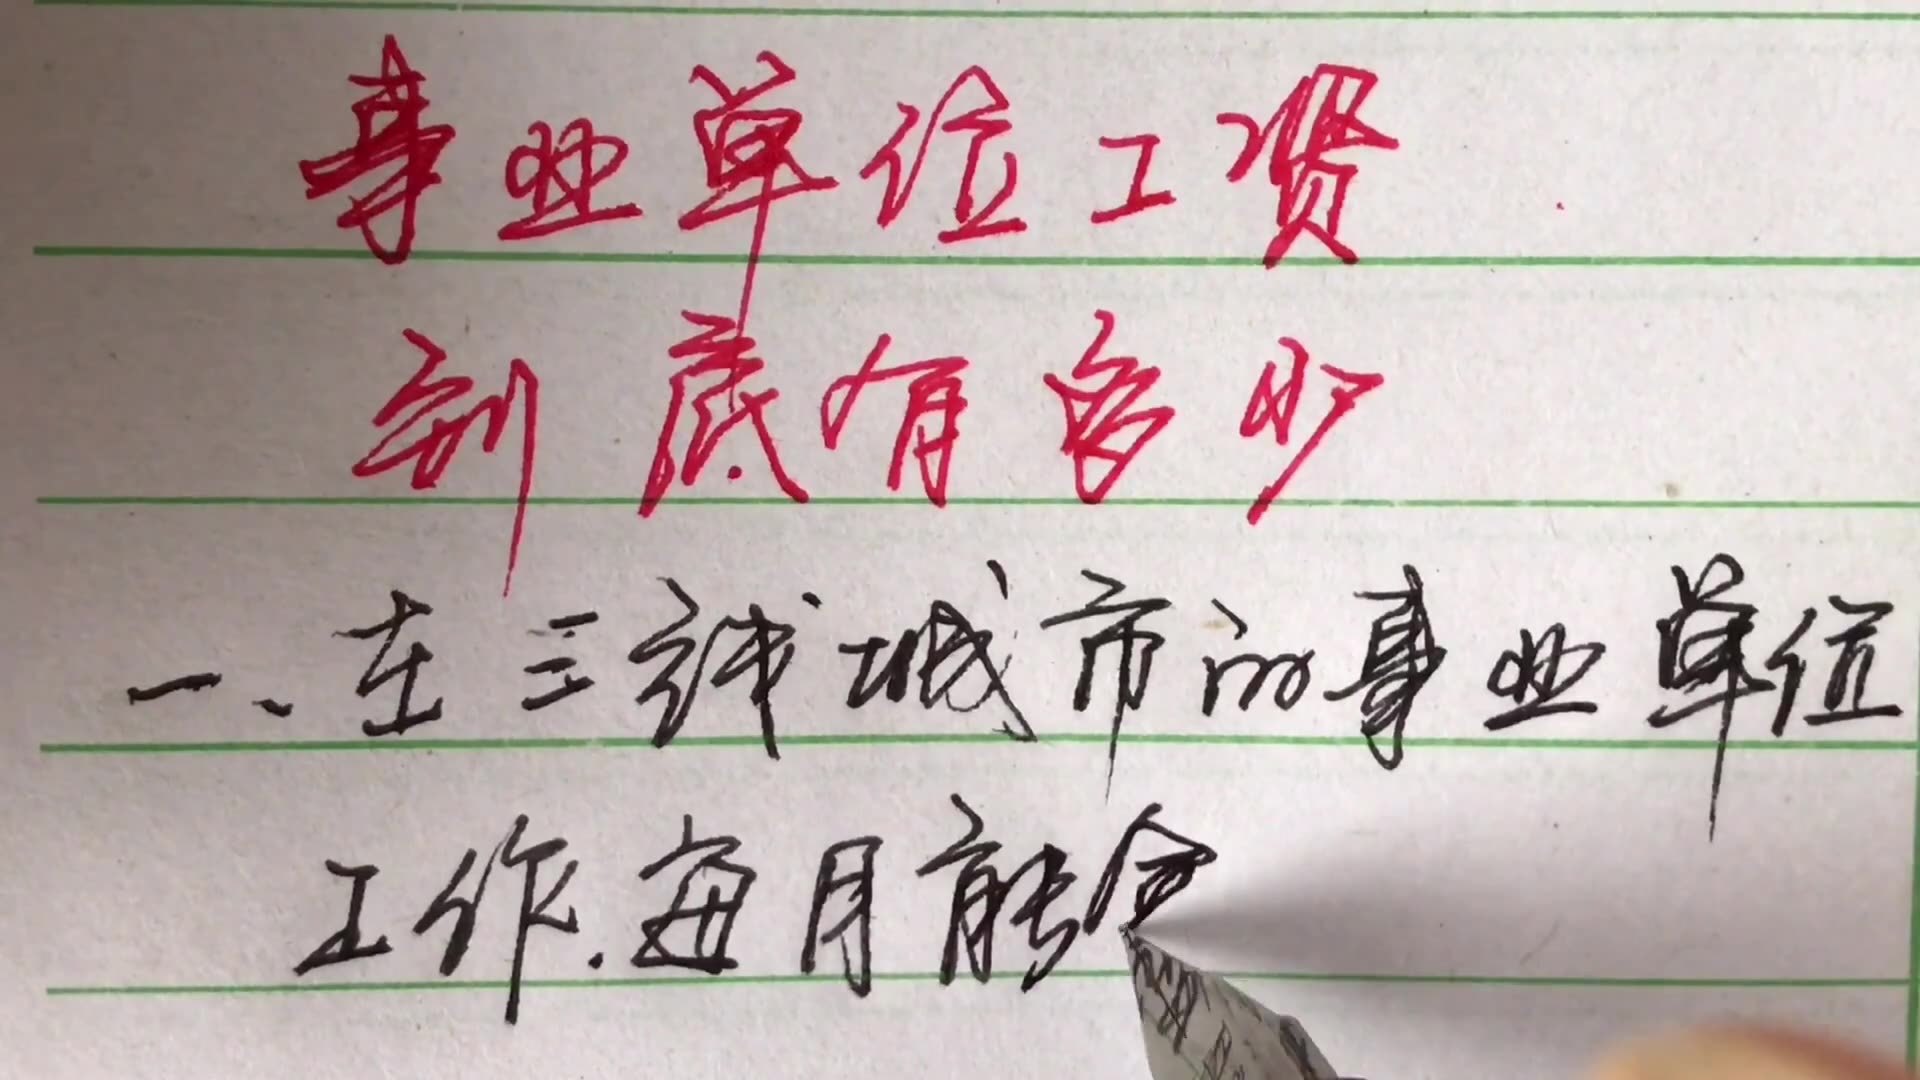 事业单位工资
到底有多少
一、在三线城市的事业单位
工作.每月能